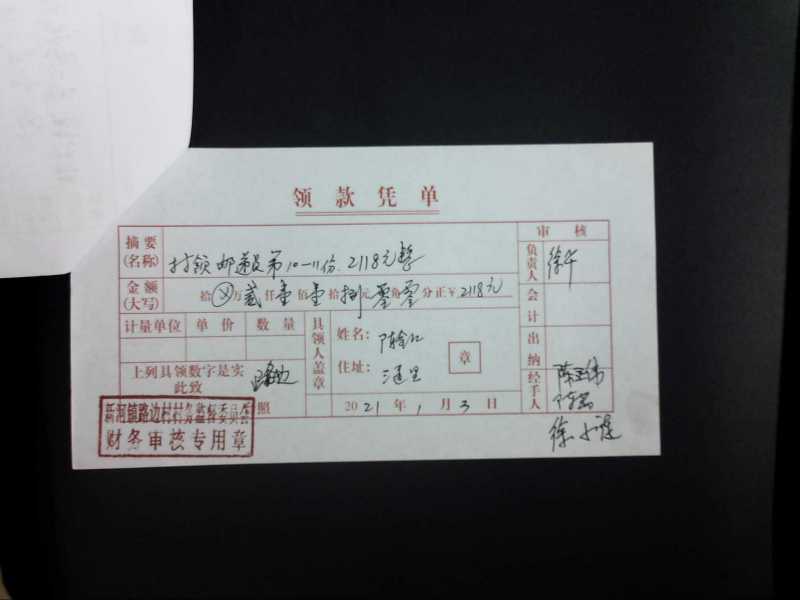 领款凭单
摘要(名称) 邮递员第10-11份.2118元整 审核
负责人 徐
金额(大写) 拾⊗万贰仟壹佰壹拾捌元零角零分正¥2118元 会计
计量单位 单价 数量 具领人盖章 姓名: 陈 章 出纳
住址: 三通里
上列具领数字是实 路边 经手人 陈
此致
照 2021年1月3日
新河镇路边村村务监督委员会
财务审核专用章 徐